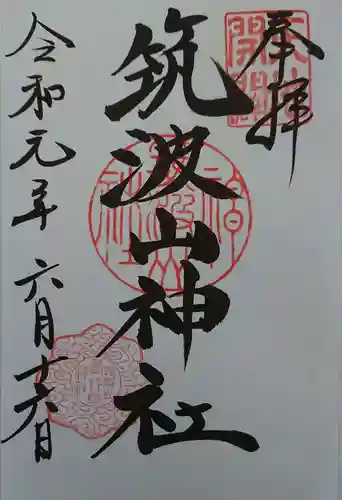 奉拝
筑波山神社
令和元年 六月十六日